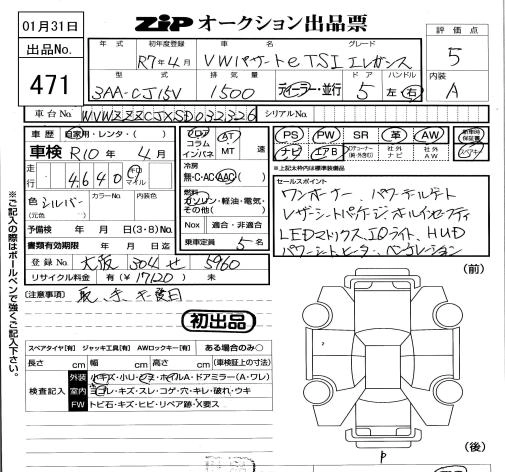 01月31日
ZIP オークション出品票
出品No.
471
評価点
5
内装
A
年式 初年度登録 車名 グレード
R7年4月 VWパサートeTSI エレガンス
型式 排気量 ドア ハンドル
3AA-CJ15V 1500 ディーラー・並行 5 左・右
車台No. WVWZZZCJXSD032326 シリアルNo.
車歴 自家用・レンタ・( )
車検 R10年4月
走行 4,640 km マイル
色 シルバー カラーNo. 内装色
(元色 )
予備検 年 月 日(3・8)No.
書類有効期限 年 月 日迄
登録No. 大阪 304 せ 5960
リサイクル料金 有(¥17120) 未
フロア コラム インパネ
AT MT 速
冷房
無・C・AC・AAC
燃料
ガソリン・軽油・電気・その他( )
Nox 適合・非適合
乗車定員 5名
PS PW SR 革 AW 新車時保証書
ナビ エアB 社外ナビ 社外AW
※上記太枠内は標準装備品
セールスポイント
ワンオーナー パワーテールゲート
レザーシートパッケージ オールインセーフティ
LEDマトリックス IQライト HUD
パワーシート ヒーター ベンチレーション
[注意事項] 取、
初出品
スペアタイヤ[有] ジャッキ工具[有] AWロックキー[有] ある場合のみ○
長さ cm 幅 cm 高さ cm (車検証上の寸法)
検査記入
外装 小キズ・小U・・ホイルA・ドアミラー(A・ワレ)
室内 ヨゴレ・キズ・スレ・コゲ・穴・キレ・破れ・ウキ
FW トビ石・キズ・ヒビ・リペア跡・X要ス
※ご記入の際はボールペンで強くご記入下さい。
(前)
(後)
P